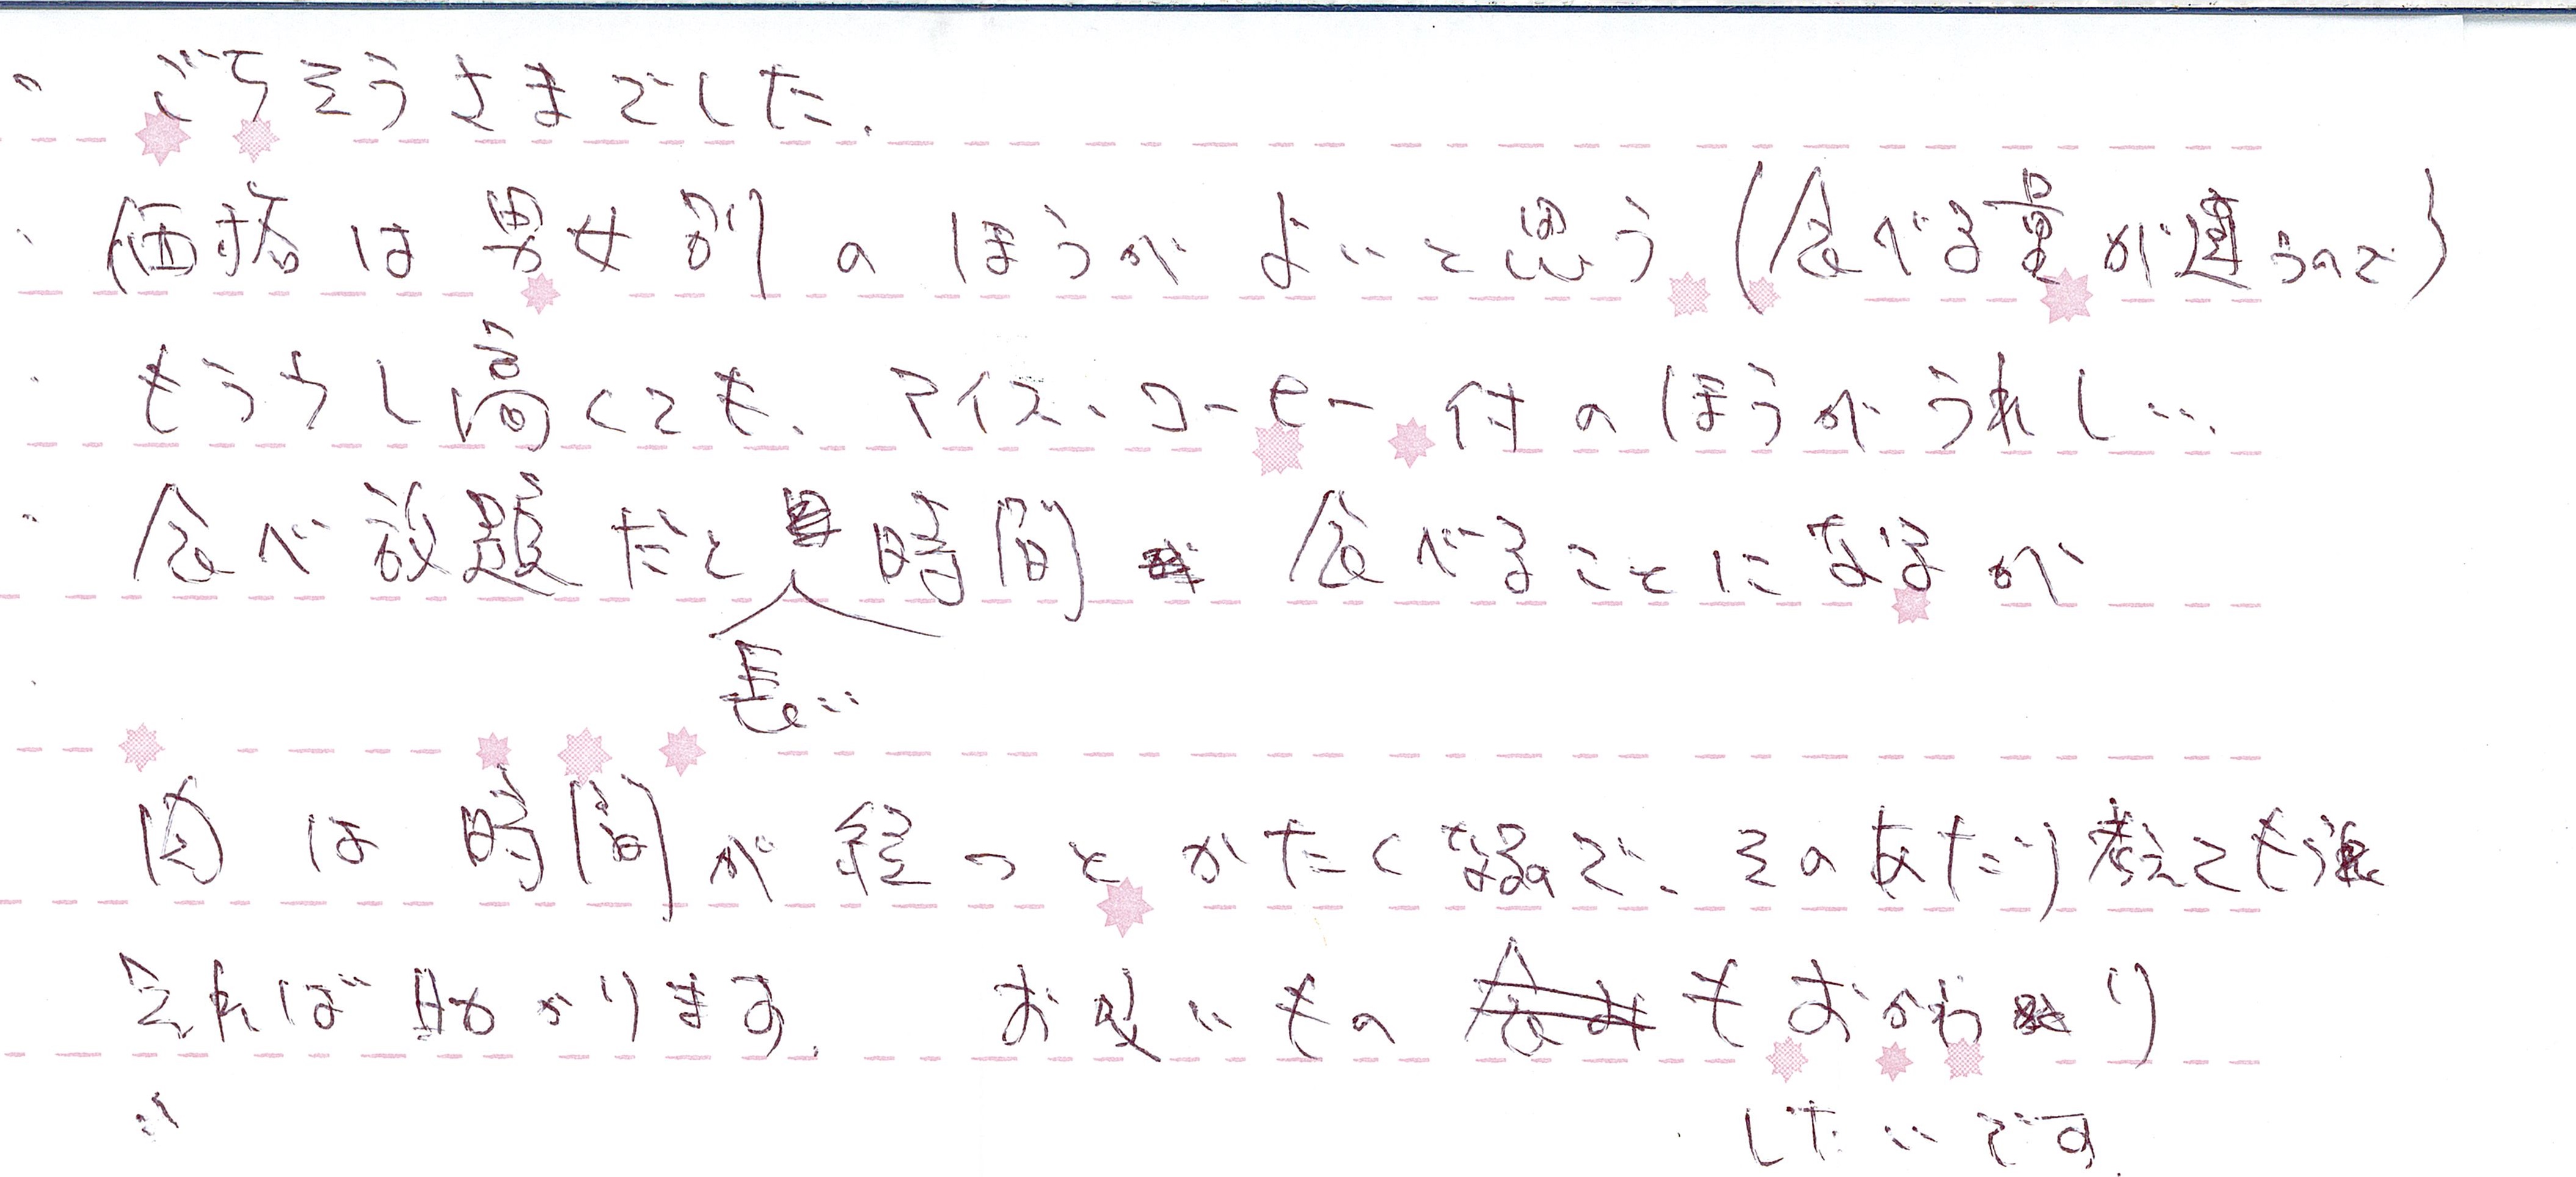 ・ごちそうさまでした.
・価格は男女別のほうがよいと思う(食べる量が違うので)
・もう少し高くても、アイス・コーヒー付のほうがうれしい.
・食べ放題だと長い時間食べることになるが
肉は時間が経つとかたくなるので、そのあたり考えてもら
えれば助かります. お吸いものもおかわり
したいです.